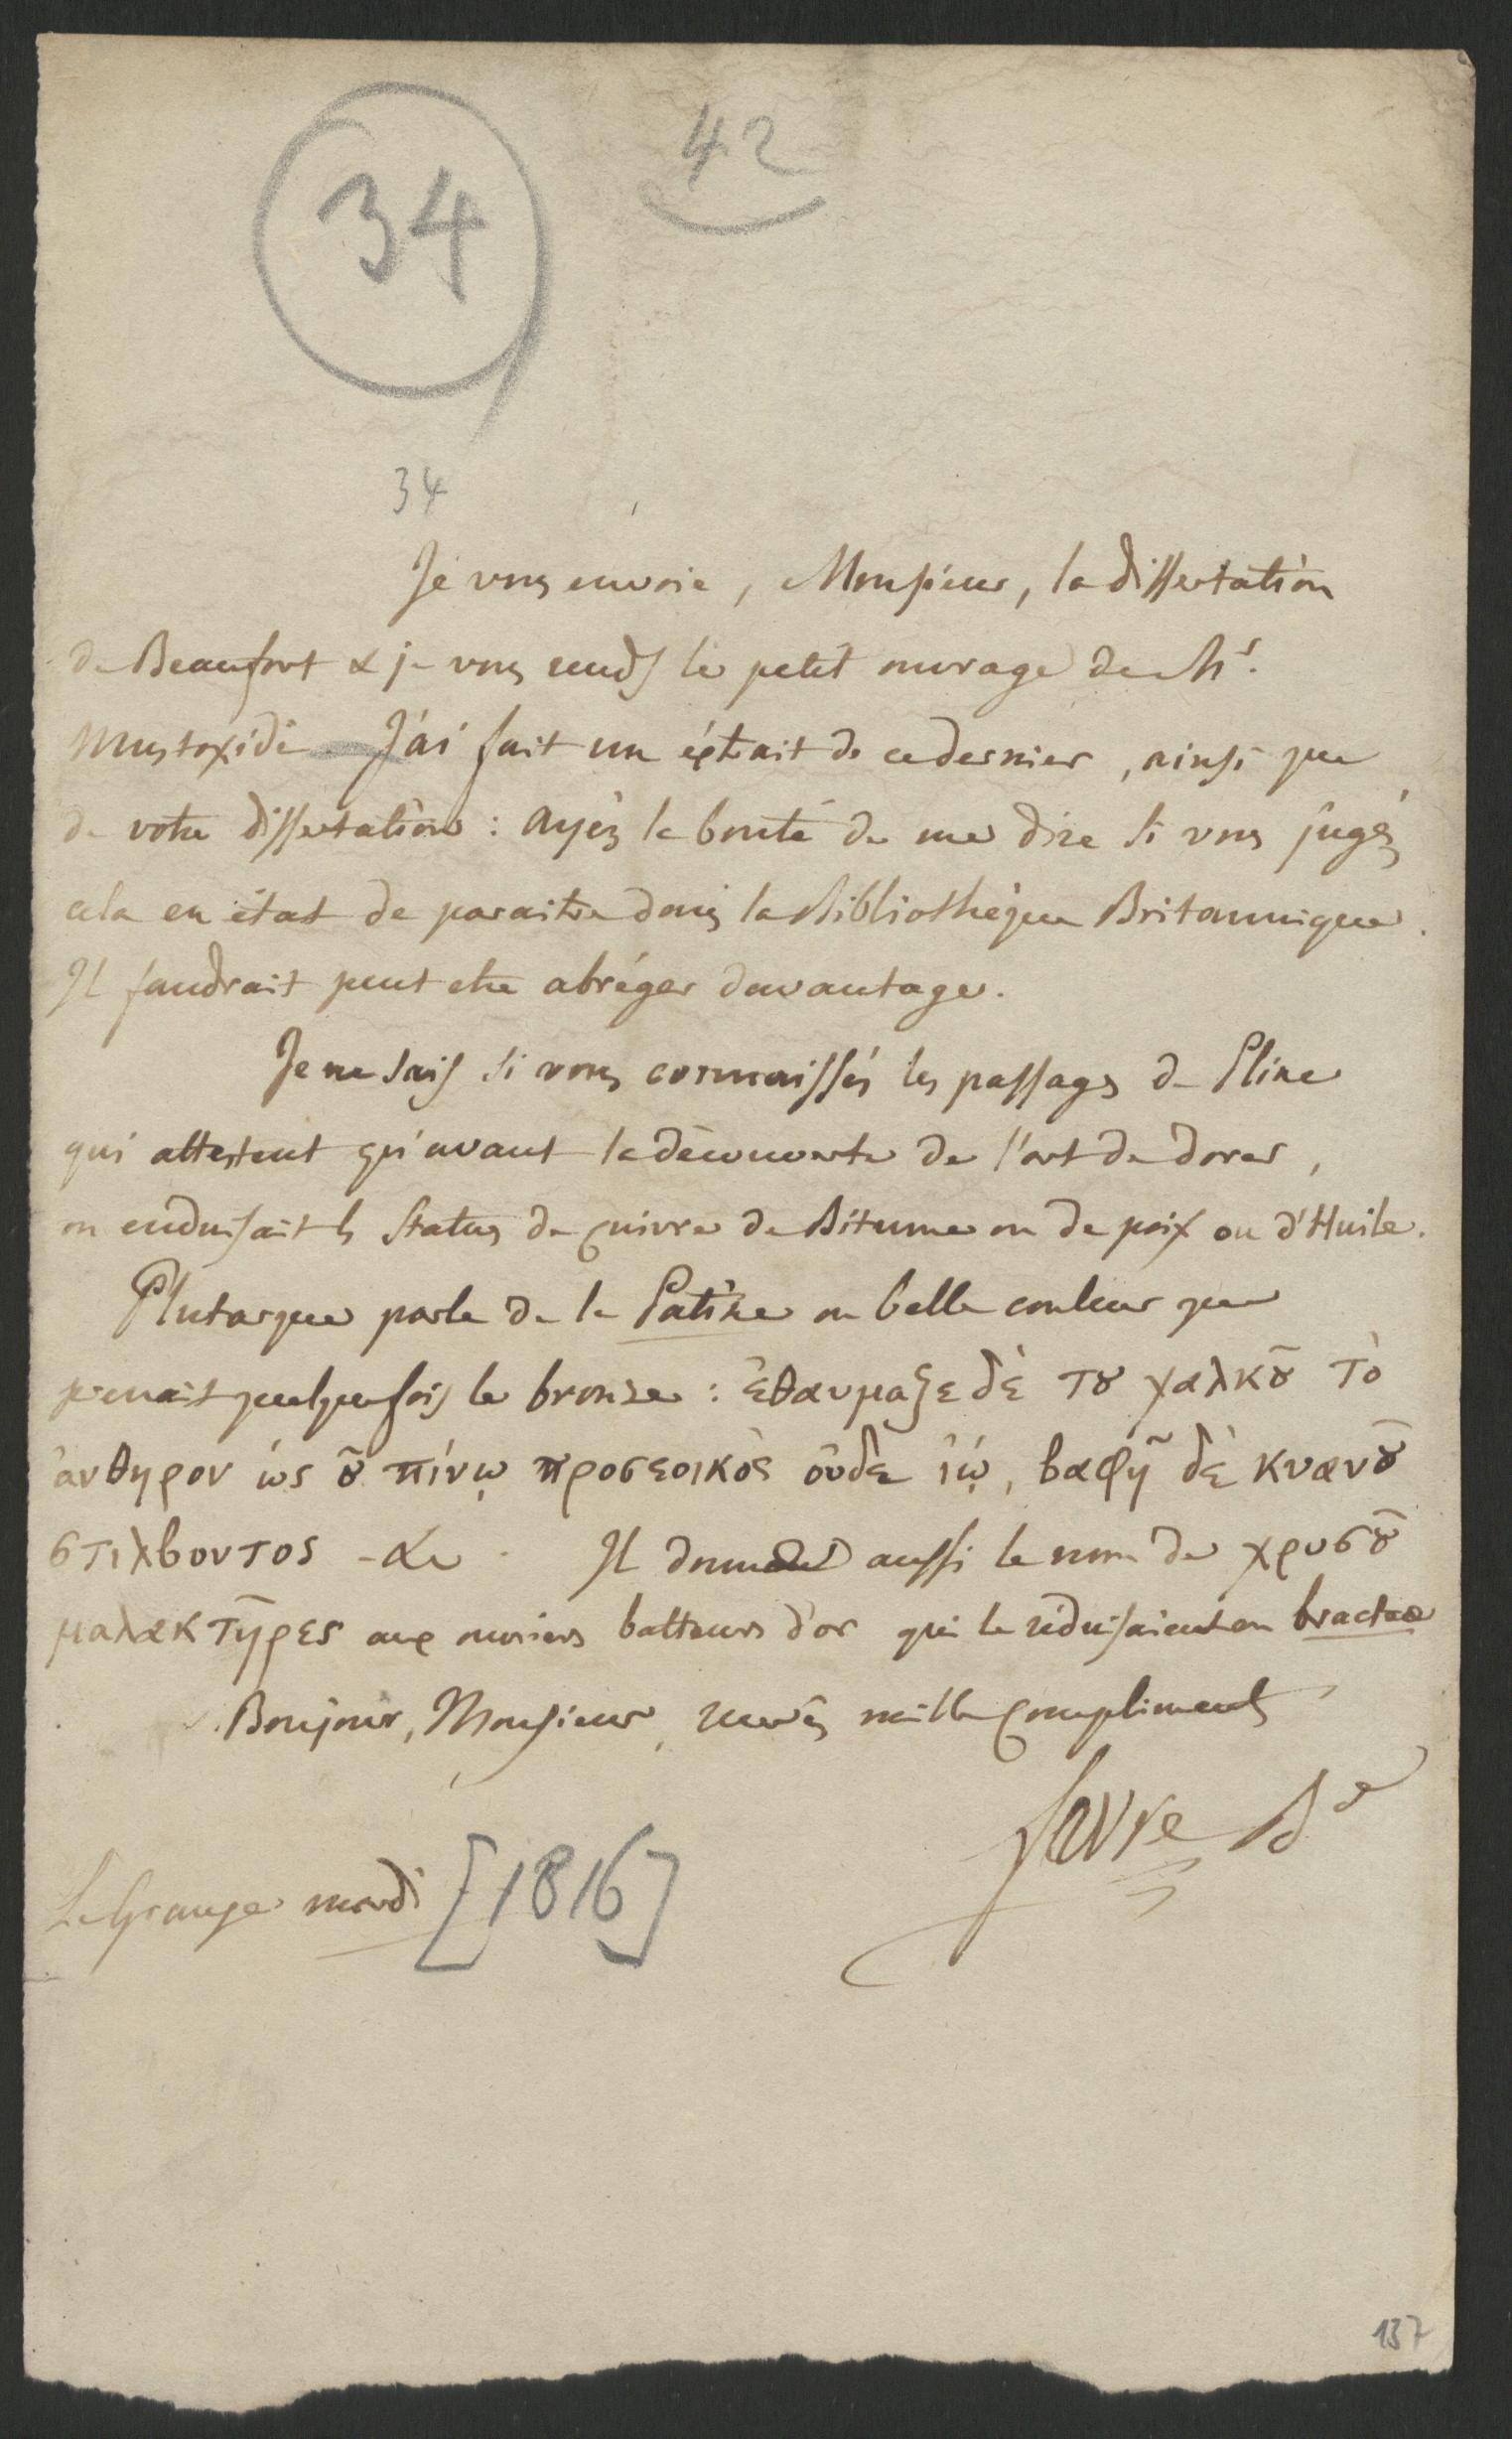 42
34
34
Je vous envoie, Monsieur, la dissertation
de Beaufort & je vous rends le petit ouvrage de Mr.
Mustoxidi. J'ai fait un extrait de ce dernier, ainsi que
de votre dissertation : ayés la bonté de me dire si vous jugés
cela en état de paraitre dans la Bibliothèque Britannique.
Il faudrait peut etre abréger davantage.
Je ne sais si vous connaissés les passages de Pline
qui attestent qu'avant la découverte de l'art de dorer,
on enduisait les Statues de cuivre de Bitume ou de poix ou d'Huile.
Plutarque parle de la Patine ou belle couleur que
prenait quelquefois le bronze : ἐθαυμαζε δὲ τȣ χαλκȣ͂ τὸ
ἀνθηρον ὡς ȣ͂ πίνῳ προσεοικὸς οὐδὲ ἰῷ, βαφῇ δὲ κυανȣ͂
στιλβοντος - &c. Il donne aussi le nom de χρυσȣ͂
μαλακτῆρες aux ouvriers batteurs d'or qui le réduisaient en bracteae
Bonjour, Monsieur, mille compliments
Favre Bd
La Grange mardi [1816]
137